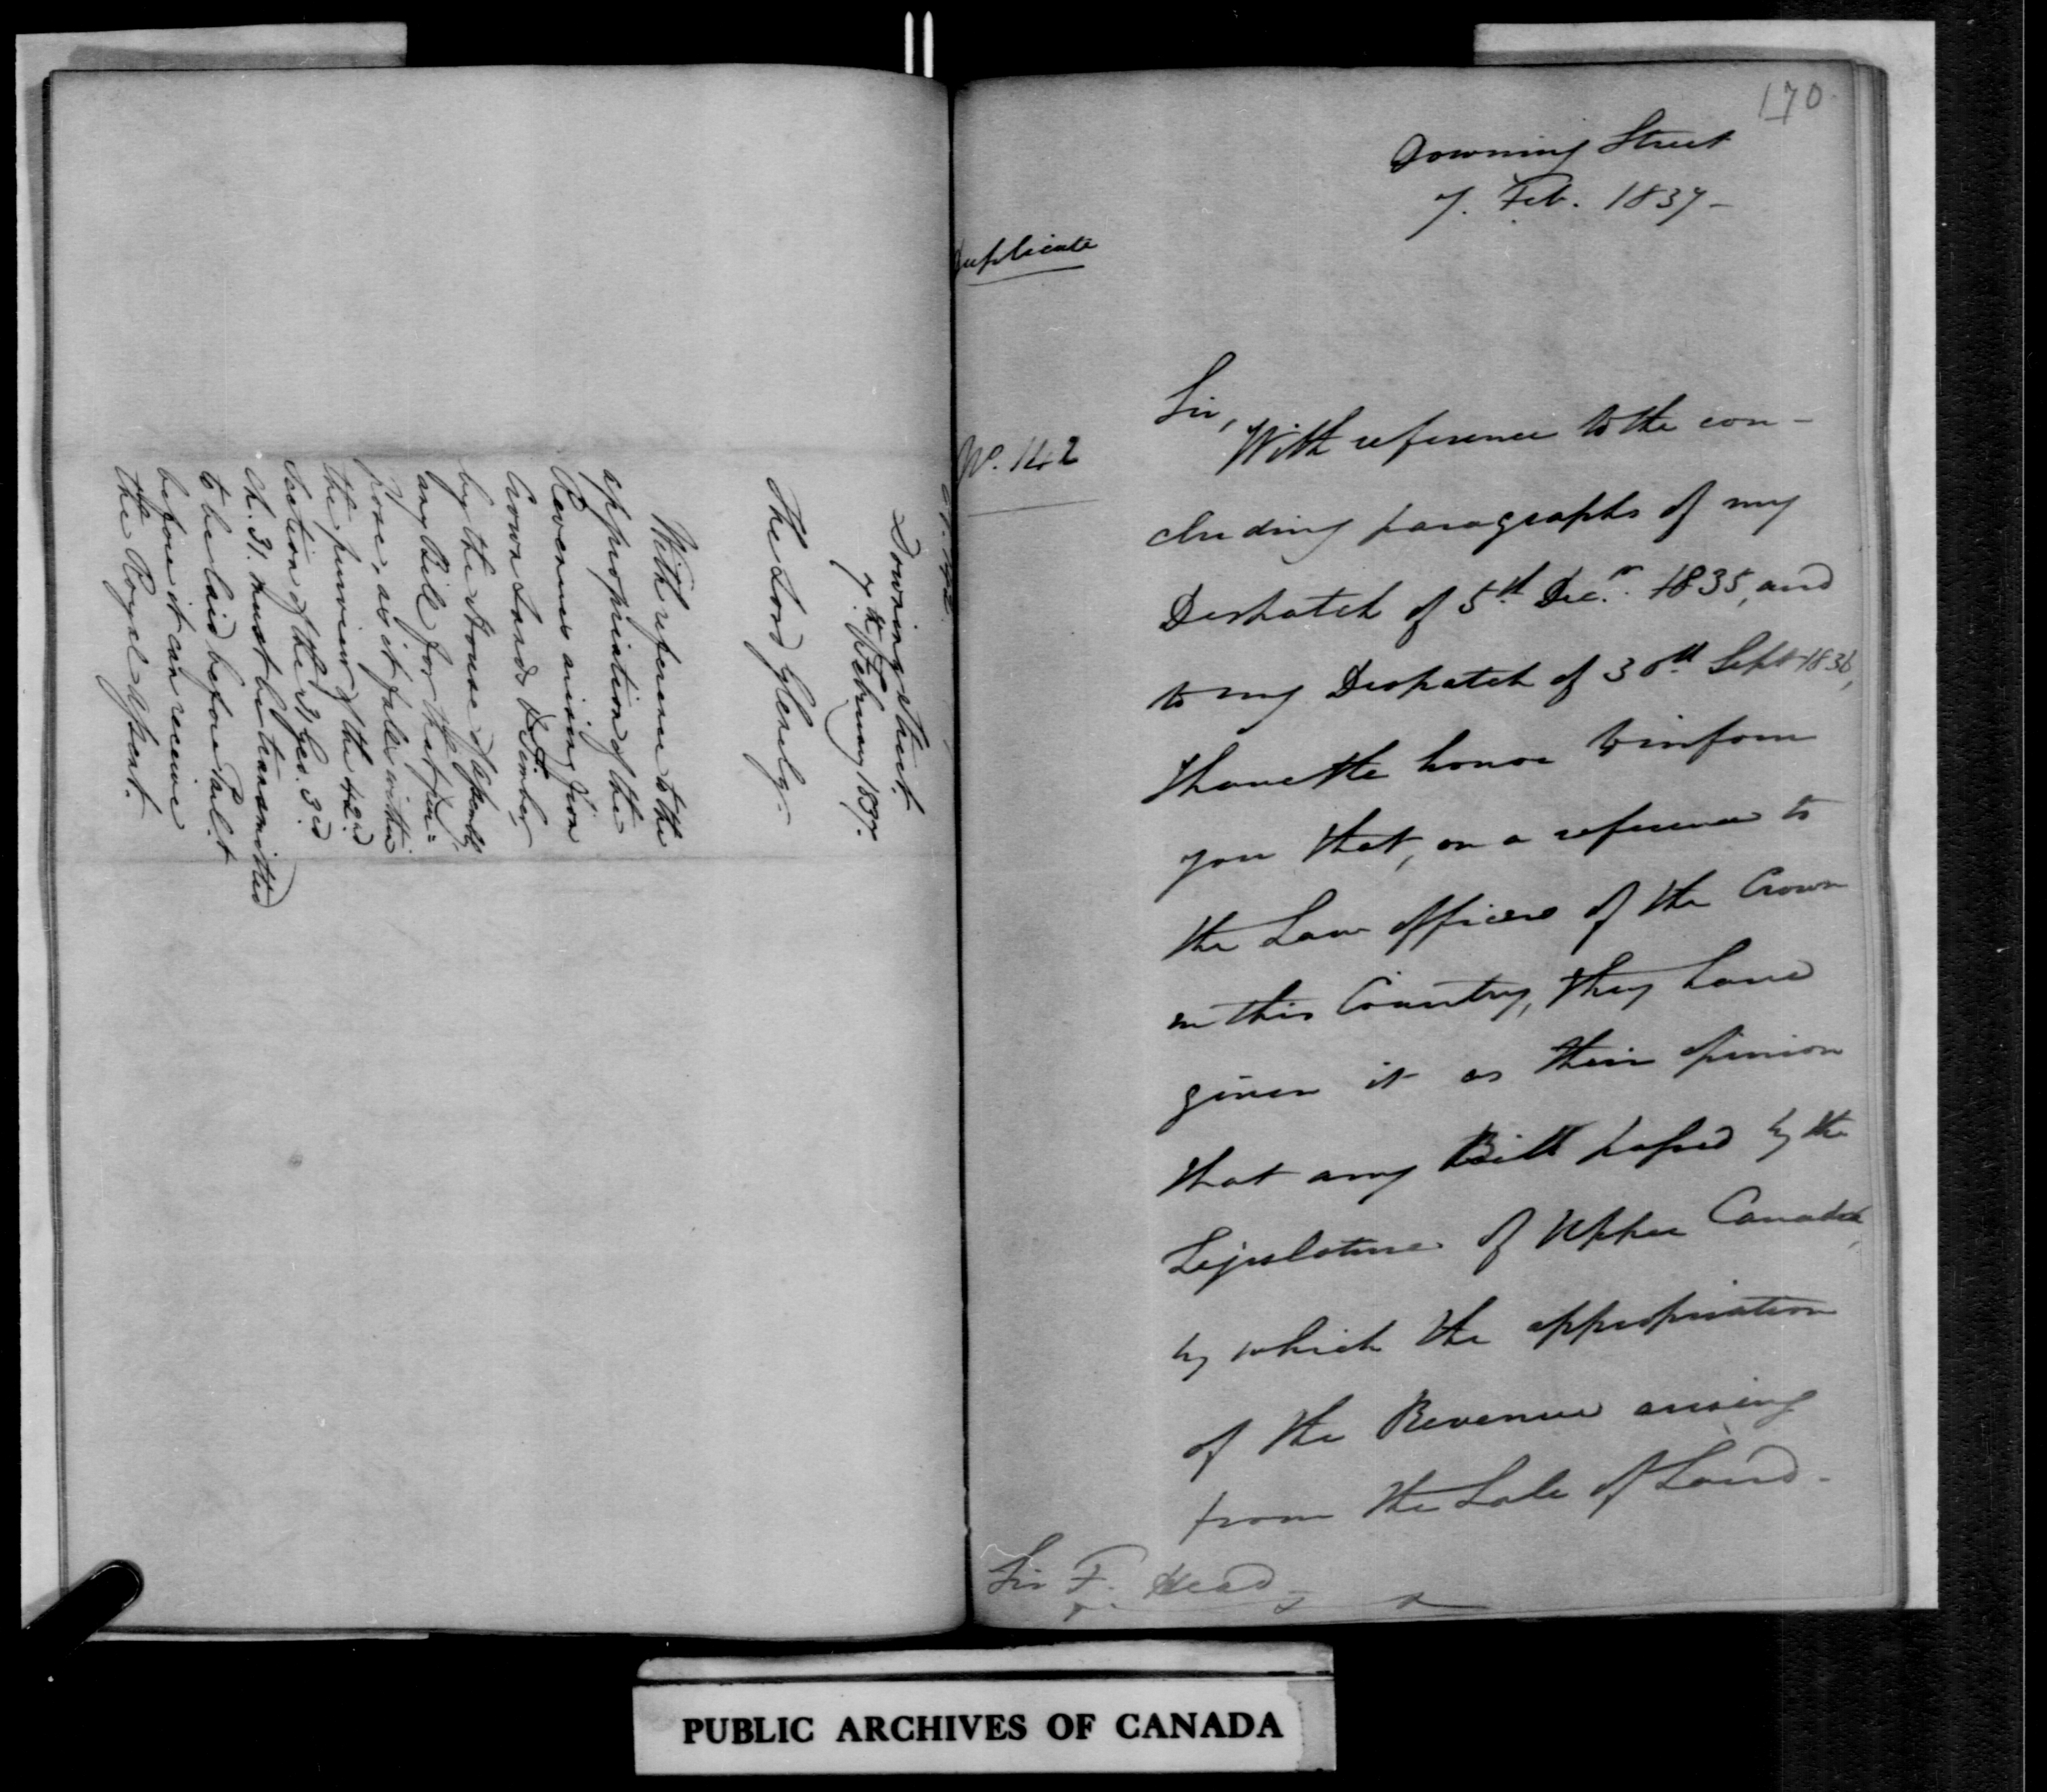 No. 142
Downing Street.
7.th February 1837.
The Lord Glenelg.
With reference to the
appropriation of the
Revenues arising from
Crown Lands & Timber,
by the House of Assembly,
any Bill for that pur=
pose, as it falls within
the purview of the 42.d
Section of the 31 Geo. 3.d
Ch. 31. must be transmitted
to be laid before Parl.t
before it can receive
the Royal Assent.
170.
Downing Street
7. Feb. 1837-
Duplicate
No. 142
Sir,
With reference to the con-
cluding paragraphs of my
Despatch of 5th Dec.r 1835, and
to my Despatch of 30th Sept 1836,
I have the honor to inform
you that, on a reference to
the Law Officers of the Crown
in this Country, they have
given it as their opinion
that any Bill passed by the
Legislature of Upper Canada,
by which the appropriation
of the Revenue arising
from the Sale of Land-
Sir F. Head
PUBLIC ARCHIVES OF CANADA